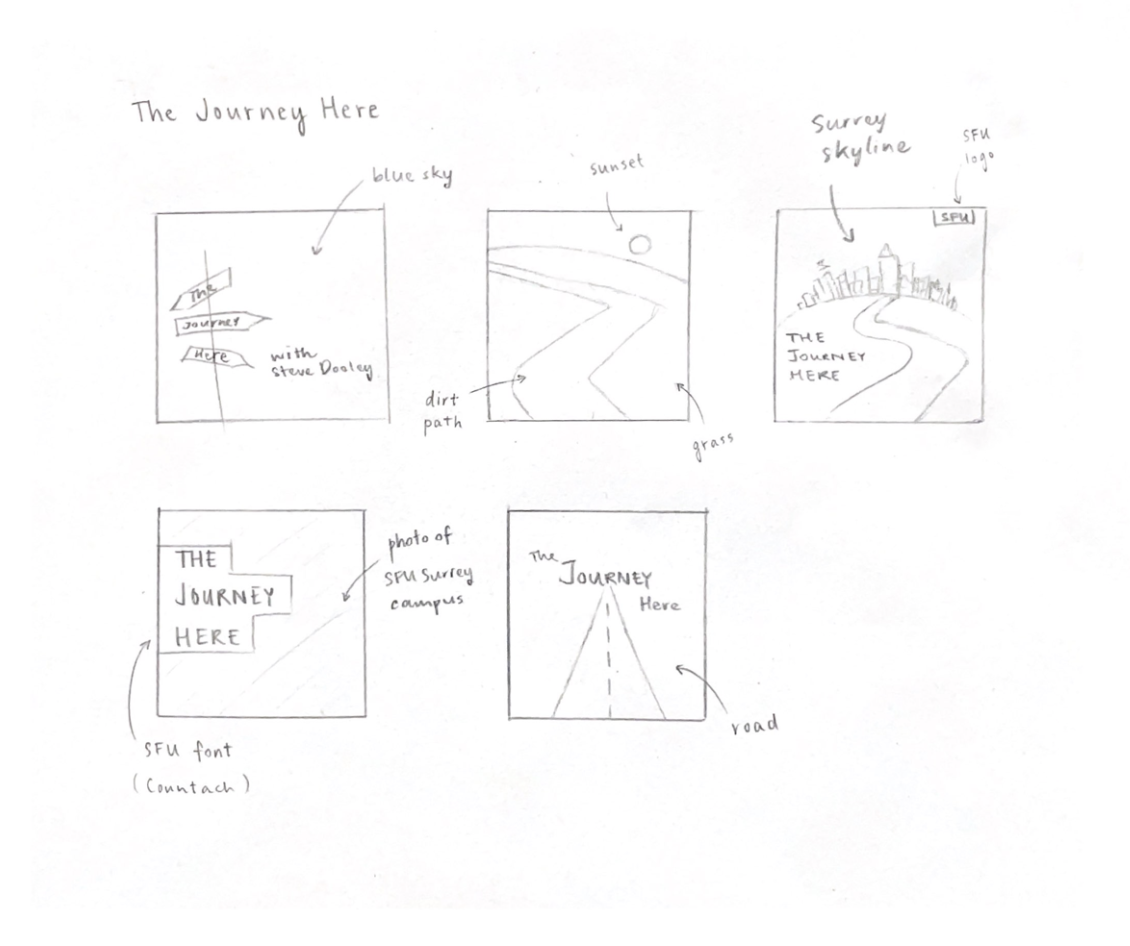 The Journey Here
blue sky
The
Journey
Here
with
Steve Dooley
sunset
dirt
path
grass
Surrey
skyline
SFU
logo
SFU
THE
JOURNEY
HERE
THE
JOURNEY
HERE
photo of
SFU Surrey
campus
SFU font
(Countach)
The
JOURNEY
Here
road